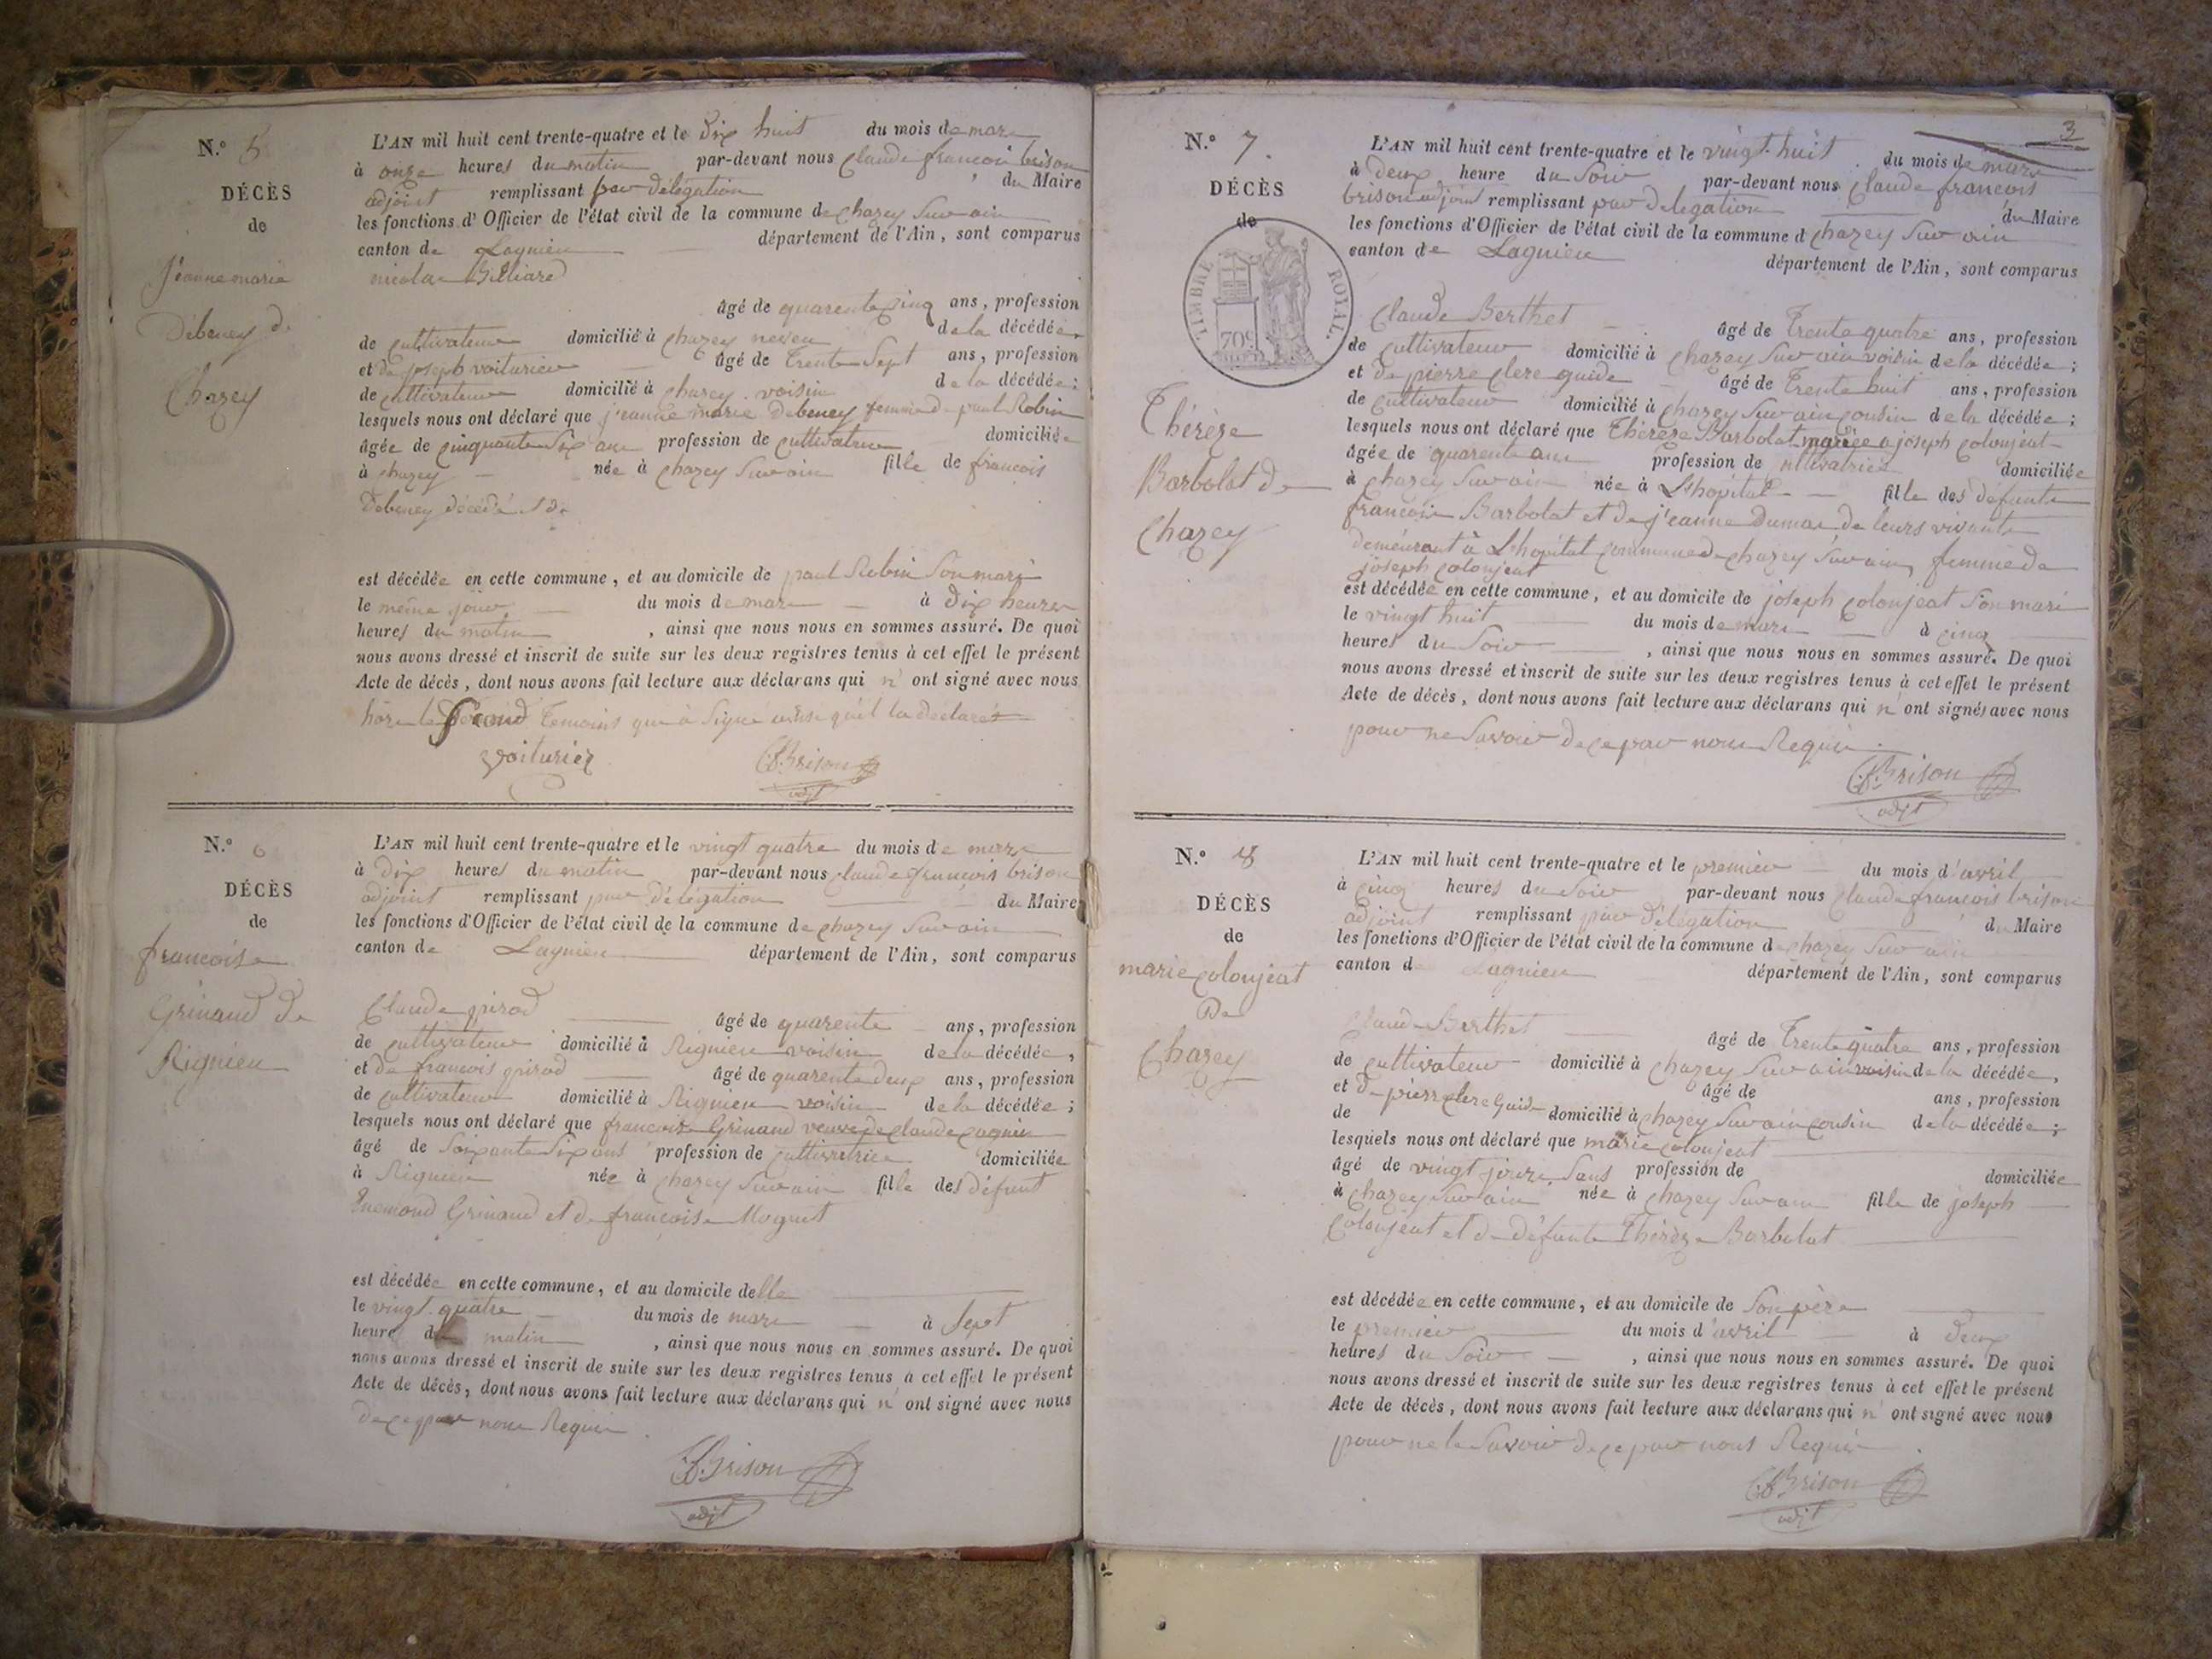 N.° 5
DÉCÈS
de
Jeanne marie
Débeney de
Chazey
L'AN mil huit cent trente-quatre et le Dix huit du mois de mars
à onze heures du matin par-devant nous Claude françois brison
adjoint remplissant par délégation du Maire
les fonctions d'Officier de l'état civil de la commune de Chazey Sur ain
canton de Lagnieu département de l'Ain, sont comparus
nicolas Billiard
âgé de quarente cinq ans, profession
de Cultivateur domicilié à Chazey neveu de la décédée,
et de joseph voiturier âgé de trente Sept ans, profession
de Cultivateur domicilié à Chazey voisin de la décédée;
lesquels nous ont déclaré que j'eanne marie debeney femme de paul Robin
âgée de Cinquante Six ans profession de Cultivatrice domiciliée
à Chazey née à Chazey Sur ain fille de francois
Debeney décédé
est décédée en cette commune, et au domicile de paul Robin Son mari
le même jour du mois de mars à Dix heures
heures du matin, ainsi que nous nous en sommes assuré. De quoi
nous avons dressé et inscrit de suite sur les deux registres tenus à cet effet le présent
Acte de décès, dont nous avons fait lecture aux déclarans qui n' ont signé avec nous
hors le Second temoins qui à Signé
voiturier CfBrison
adjt
N.° 6
DÉCÈS
de
francoise
Grinand de
Rignieu
L'AN mil huit cent trente-quatre et le vingt quatre du mois de mars
à Dix heures du matin par-devant nous Claude françois brison
adjoint remplissant par délégation du Maire
les fonctions d'Officier de l'état civil de la commune de Chazey Sur ain
canton de Lagnieu département de l'Ain, sont comparus
Claude girod âgé de quarente ans, profession
de Cultivateur domicilié à Rignieu voisin de la décédée,
et de francois girod âgé de quarente deux ans, profession
de Cultivateur domicilié à Rignieu voisin de la décédée;
lesquels nous ont déclaré que francoise Grinand veuve de Claude
âgé de Soixante Six ans profession de Cultivatrice domiciliée
à Rignieu née à Chazey Sur ain fille des défunt
Grinand et de françoise Moguet
est décédée en cette commune, et au domicile delle
le vingt quatre du mois de mars à Sept
heures du matin, ainsi que nous nous en sommes assuré. De quoi
nous avons dressé et inscrit de suite sur les deux registres tenus à cet effet le présent
Acte de décès, dont nous avons fait lecture aux déclarans qui n' ont signé avec nous
de ce par nous Requis
CfBrison
adjt
3
N.° 7.
DÉCÈS
de
TIMBRE ROYAL.
70c
Thérèze
Barbolat de
Chazey
L'AN mil huit cent trente-quatre et le vingt-huit du mois de mars
à deux heure du Soir par-devant nous Claude francois
brison adjoint remplissant par délégation du Maire
les fonctions d'Officier de l'état civil de la commune d Chazey Sur ain
canton de Lagnieu département de l'Ain, sont comparus
Claude Berthet âgé de Trente quatre ans, profession
de Cultivateur domicilié à Chazey Sur ain voisin de la décédée;
et de pierre Clere guide âgé de Trente huit ans, profession
de Cultivateur domicilié à Chazey Sur ain Cousin de la décédée;
lesquels nous ont déclaré que Thérèze Barbolat mariée a joseph Colonjeat
âgée de quarente ans profession de domiciliée
à Chazey Sur ain née à L'hopital fille des défunts
françois Barbolat et de j'eanne Dumas de leurs vivants
demeurant à L'hopital Commune de Chazey Sur ain, femme de
joseph Colonjeat
est décédée en cette commune, et au domicile de joseph Colonjeat Son mari
le vingt huit du mois de mars à Cinq
heures du Soir, ainsi que nous nous en sommes assuré. De quoi
nous avons dressé et inscrit de suite sur les deux registres tenus à cet effet le présent
Acte de décès, dont nous avons fait lecture aux déclarans qui n' ont signés avec nous
pour ne Savoir de ce par nous Requis.
CfBrison
adjt
N.° 8
DÉCÈS
de
marie Colonjeat
De
Chazey
L'AN mil huit cent trente-quatre et le premier du mois d'avril
à Cinq heures du Soir par-devant nous Claude françois brison
adjoint remplissant par délégation du Maire
les fonctions d'Officier de l'état civil de la commune de Chazey Sur ain
canton d Lagnieu département de l'Ain, sont comparus
Claude Berthet âgé de Trente quatre ans, profession
de Cultivateur domicilié à Chazey Sur ain voisin de la décédée,
et d pierre Clere Guide âgé de ans, profession
de domicilié à Chazey Sur ain Cousin de la décédée;
lesquels nous ont déclaré que marie Colonjeat
âgé de vingt jours Sans profession de domiciliée
à Chazey Sur ain née à Chazey Sur ain fille de joseph
Colonjeat et de défunte Thérèze Barbolat
est décédée en cette commune, et au domicile de Son père
le premier du mois d'avril à Deux
heures du Soir, ainsi que nous nous en sommes assuré. De quoi
nous avons dressé et inscrit de suite sur les deux registres tenus à cet effet le présent
Acte de décès, dont nous avons fait lecture aux déclarans qui n' ont signé avec nous
pour ne le Savoir de ce par nous Requis.
CfBrison
adjt